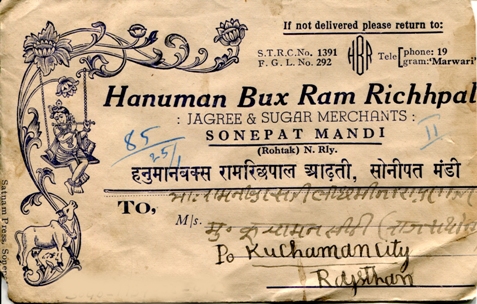 If not delivered please return to:
S.T.R.C.No. 1391
F. G. L. No. 292
HBR
Tele [phone: 19
gram: 'Marwari'
Hanuman Bux Ram Richhpal
: JAGREE & SUGAR MERCHANTS :
SONEPAT MANDI
(Rohtak) N. Rly.
85
25/1
II
हनुमानबक्स रामरिछपाल आढ़ती, सोनीपत मंडी
TO,
M/s.
मु० कुचामन सीटी (राजस्थान)
Po Kuchaman City
Rajsthan
Satnam Press, Sonep